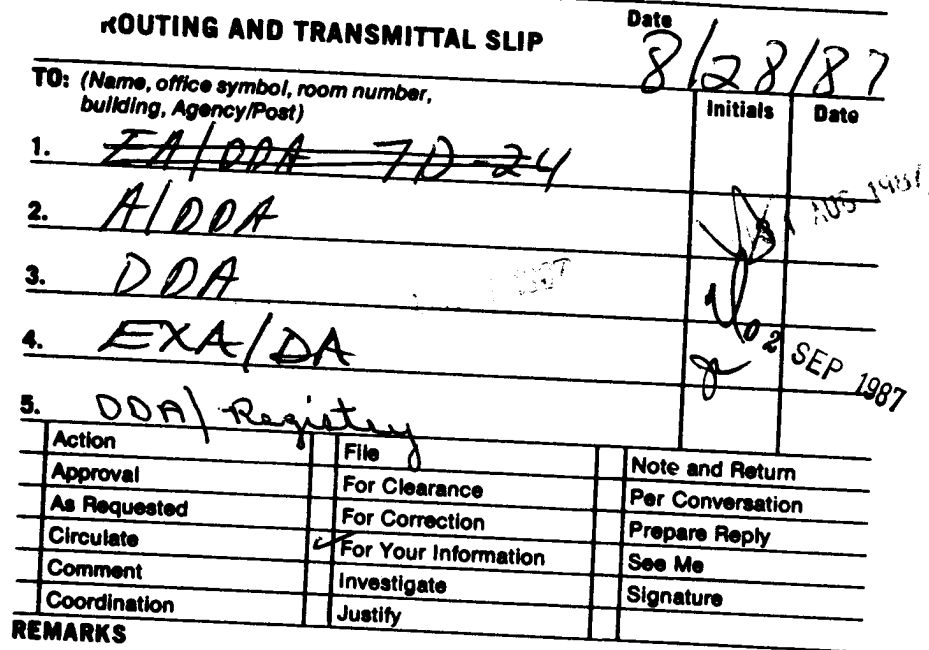 ROUTING AND TRANSMITTAL SLIP
Date
8/28/87
TO: (Name, office symbol, room number,
building, Agency/Post)
Initials Date
1. EA/DDA 7D-24
AUG 1987
2. A/DDA
3. DDA
4. EXA/DA
02 SEP 1987
5. DDA/Registry
Action File Note and Return
Approval For Clearance Per Conversation
As Requested For Correction Prepare Reply
Circulate For Your Information See Me
Comment Investigate Signature
Coordination Justify
REMARKS